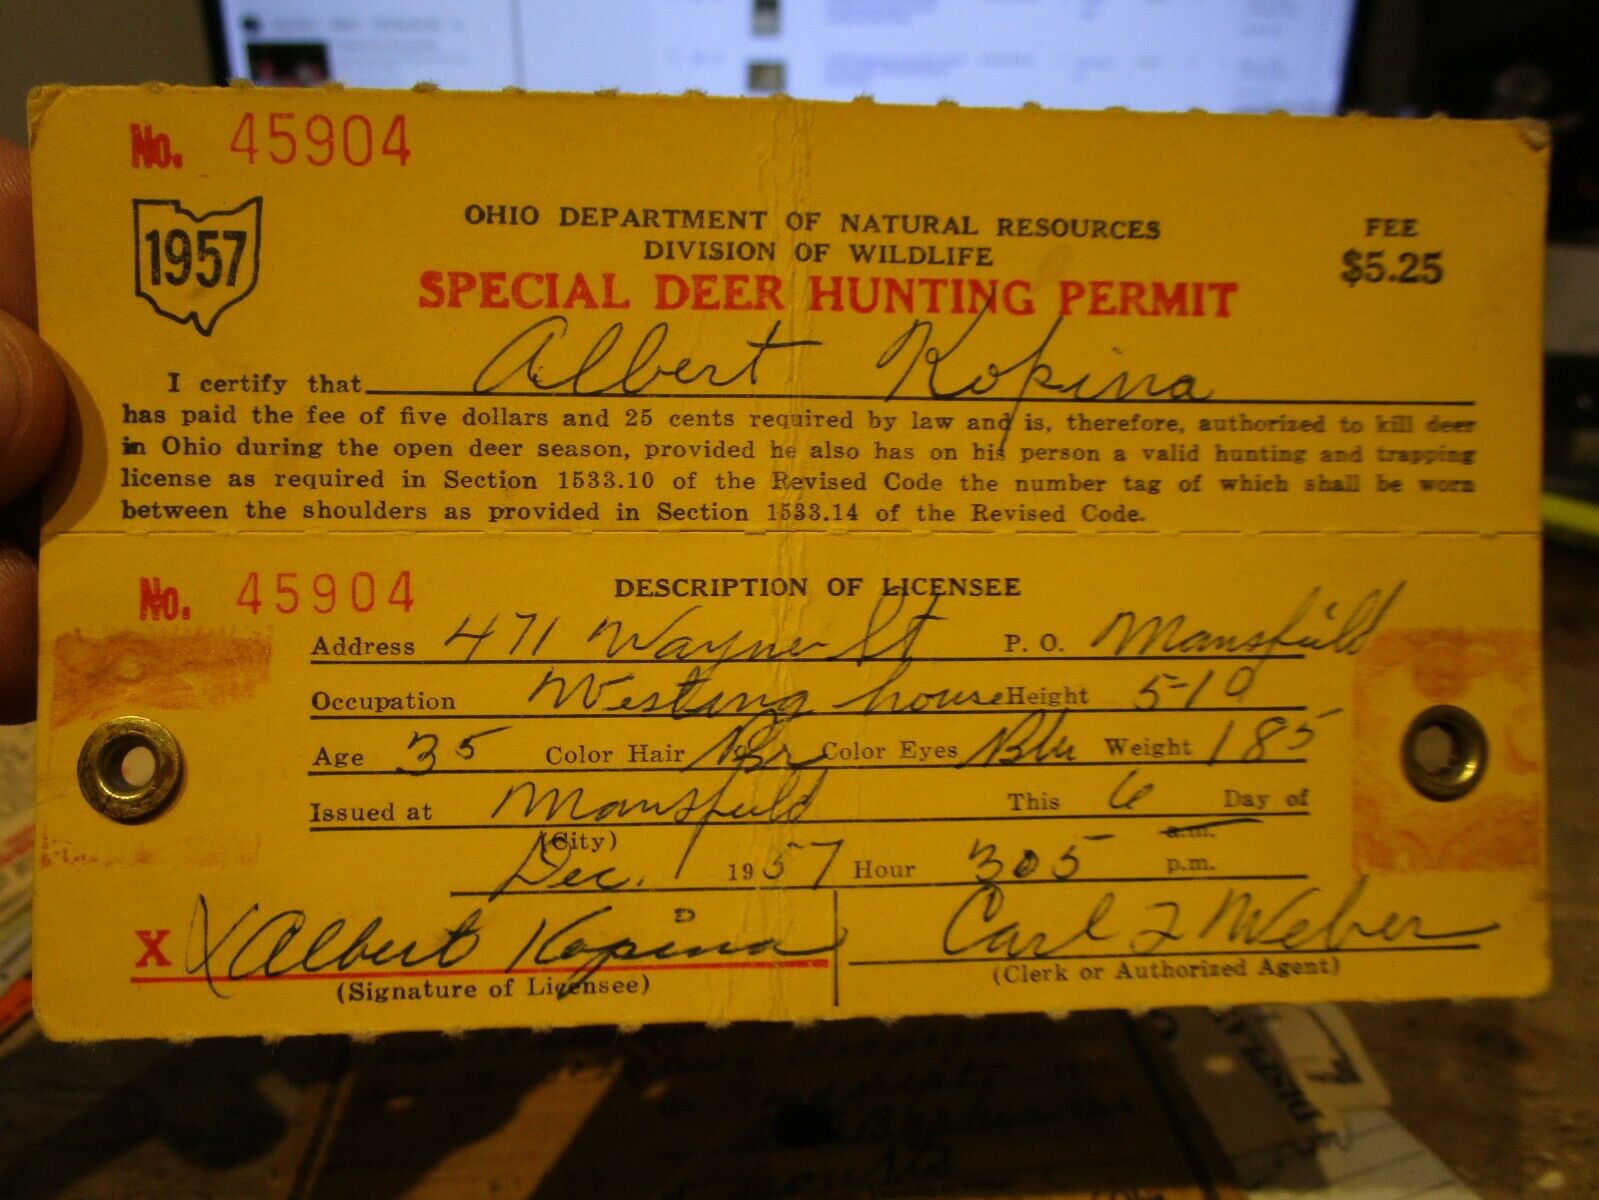 No. 45904
1957
OHIO DEPARTMENT OF NATURAL RESOURCES
DIVISION OF WILDLIFE
SPECIAL DEER HUNTING PERMIT
FEE
$5.25
I certify that Albert Kopina
has paid the fee of five dollars and 25 cents required by law and is, therefore, authorized to kill deer
in Ohio during the open deer season, provided he also has on his person a valid hunting and trapping
license as required in Section 1533.10 of the Revised Code the number tag of which shall be worn
between the shoulders as provided in Section 1533.14 of the Revised Code.
No. 45904
DESCRIPTION OF LICENSEE
Address 471 Wayne St P. O. Mansfield
Occupation Westing house Height 5-10
Age 35 Color Hair Br Color Eyes Blu Weight 185
Issued at Mansfield This 6 Day of
(City) a.m.
Dec. 1957 Hour 305 p.m.
X X Albert Kopina Carl F Weber
(Signature of Licensee) (Clerk or Authorized Agent)